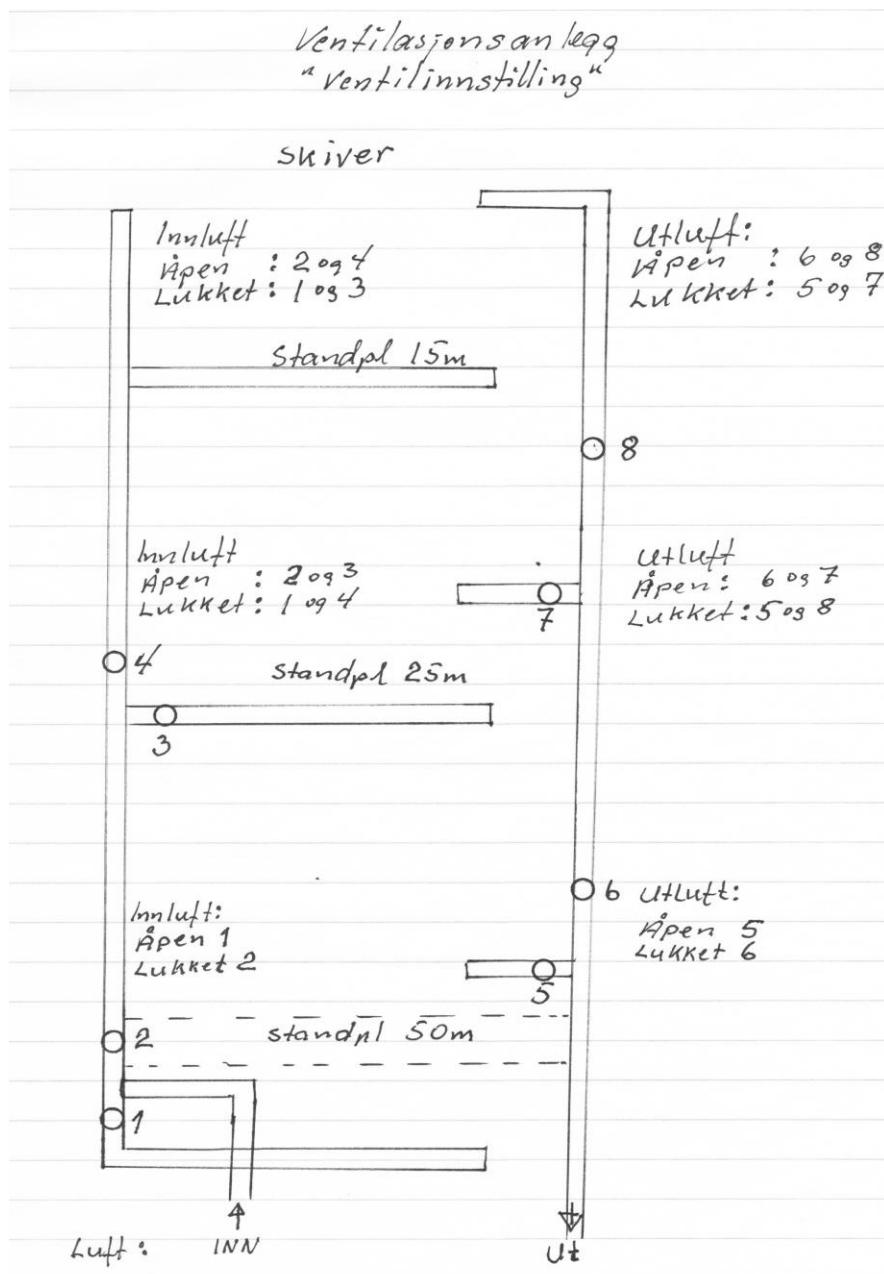 Ventilasjonsanlegg
"Ventilinnstilling"
Skiver
Innluft
Åpen : 2 og 4
Lukket : 1 og 3
Utluft:
Åpen : 6 og 8
Lukket : 5 og 7
Standpl 15m
8
Innluft
Åpen : 2 og 3
Lukket : 1 og 4
Utluft
Åpen : 6 og 7
Lukket : 5 og 8
7
4
Standpl 25m
3
6
Utluft:
Åpen 5
Lukket 6
Innluft:
Åpen 1
Lukket 2
5
2
Standpl 50m
1
Luft : INN
Ut